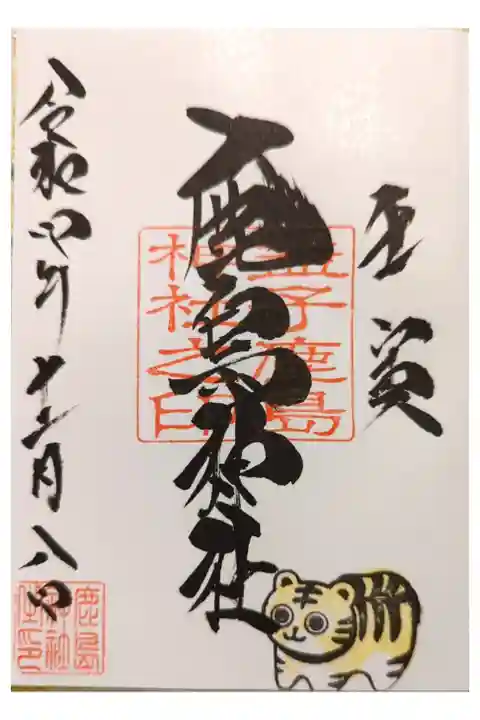 奉賀
鹿島神社
益子鹿島
神社之印
令和四年十二月八日
鹿島
神社